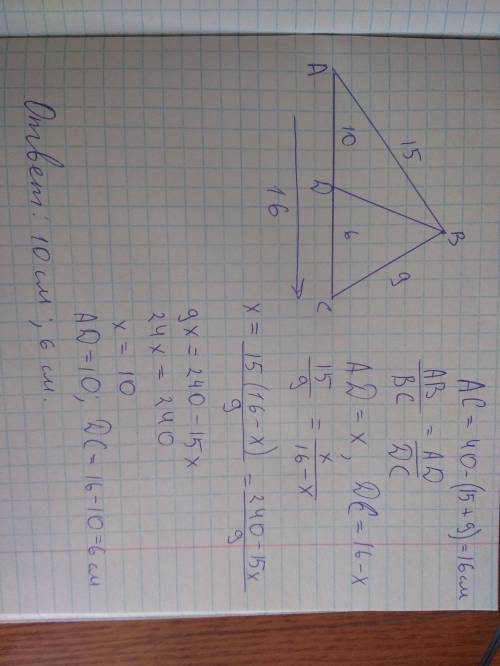 B
15
9
A
10
D
6
C
16
AC = 40 - (15 + 9) = 16 см
AB/BC = AD/DC
AD = x, DC = 16 - x
15/9 = x/16 - x
x = 15(16 - x)/9 = 240 - 15x/9
9x = 240 - 15x
24x = 240
x = 10
AD = 10; DC = 16 - 10 = 6 см
Ответ: 10 см; 6 см.